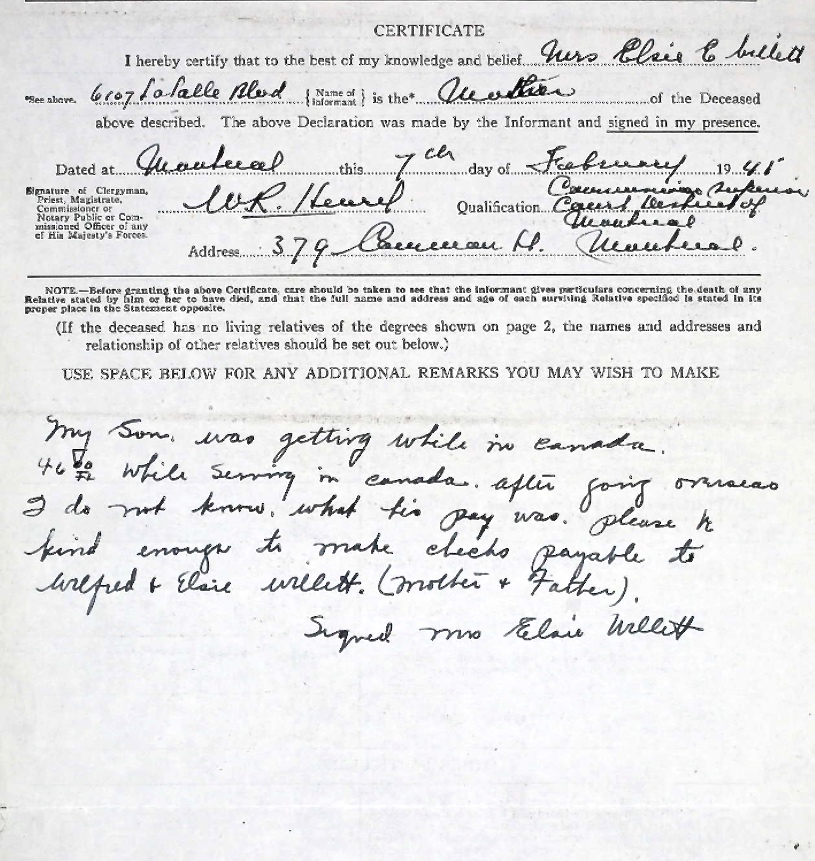 CERTIFICATE
I hereby certify that to the best of my knowledge and belief Mrs Elsie E Willett
*See above. 6107 LaSalle Blvd {Name of Informant} is the* Mother of the Deceased
above described. The above Declaration was made by the Informant and signed in my presence.
Dated at Montreal this 7th day of February 1945
Signature of Clergyman,
Priest, Magistrate,
Commissioner or
Notary Public or Com-
missioned Officer of any
of His Majesty's Forces.
W.R. Qualification Commissioner Superior
Court District of
Montreal
Address 379 Common St. Montreal.
NOTE.—Before granting the above Certificate, care should be taken to see that the informant gives particulars concerning the death of any
Relative stated by him or her to have died, and that the full name and address and age of each surviving Relative specified is stated in its
proper place in the Statement opposite.
(If the deceased has no living relatives of the degrees shown on page 2, the names and addresses and
relationship of other relatives should be set out below.)
USE SPACE BELOW FOR ANY ADDITIONAL REMARKS YOU MAY WISH TO MAKE
My Son. was getting while in canada.
46 while serving in canada. after going overseas
I do not know. what his pay was. please be
kind enough to make checks payable to
Wilfred & Elsie Willett. (Mother & Father).
Signed Mrs Elsie Willett